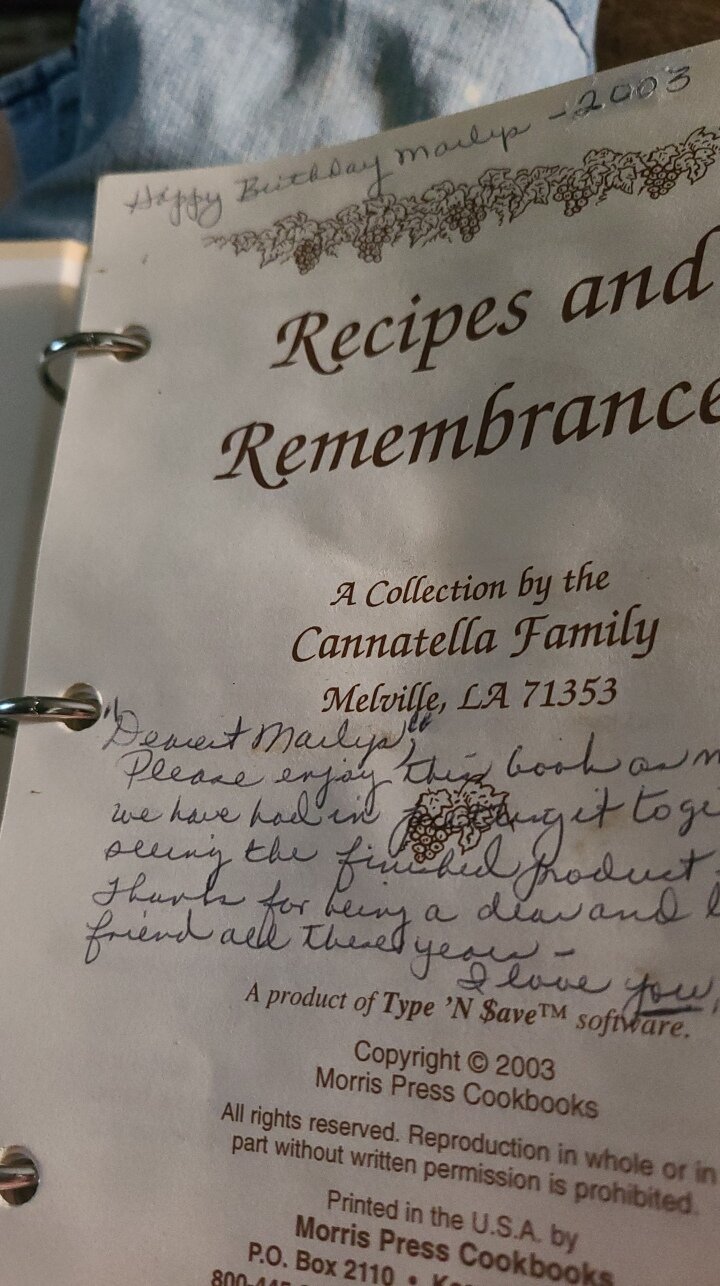 Happy Birthday Marlys - 2003
Recipes and
Remembrance
A Collection by the
Cannatella Family
Melville, LA 71353
"Dearest Marlys",
Please enjoy this book as
we have had in
seeing the finished product
Thanks for being a dear and
friend all these years -
I love you,
A product of Type 'N $ave™ software.
Copyright © 2003
Morris Press Cookbooks
All rights reserved. Reproduction in whole or in
part without written permission is prohibited.
Printed in the U.S.A. by
Morris Press Cookbooks
P.O. Box 2110 •
800-445